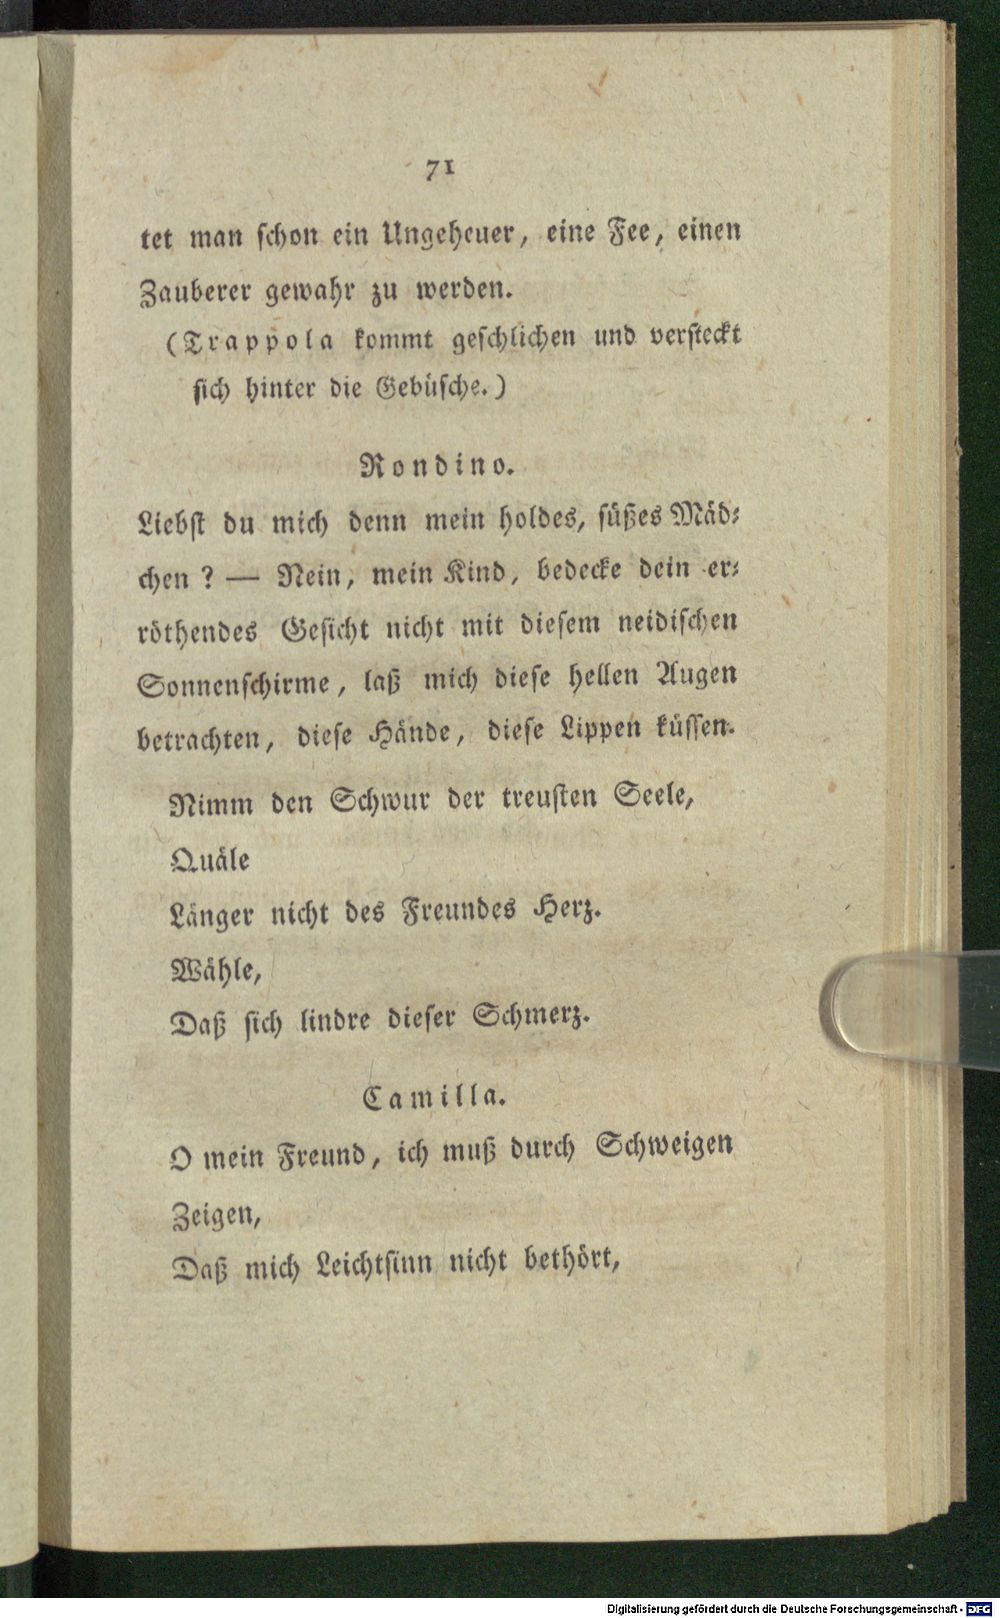 71
tet man schon ein Ungeheuer, eine Fee, einen
Zauberer gewahr zu werden.
(Trappola kommt geschlichen und versteckt
sich hinter die Gebüsche.)
Rondino.
Liebst du mich denn mein holdes, süßes Mäd⸗
chen? — Nein, mein Kind, bedecke dein er⸗
röthendes Gesicht nicht mit diesem neidischen
Sonnenschirme, laß mich diese hellen Augen
betrachten, diese Hände, diese Lippen küssen.
Nimm den Schwur der treusten Seele,
Quäle
Länger nicht des Freundes Herz.
Wähle,
Daß sich lindre dieser Schmerz.
Camilla.
O mein Freund, ich muß durch Schweigen
Zeigen,
Daß mich Leichtsinn nicht bethört,
Digitalisierung gefördert durch die Deutsche Forschungsgemeinschaft - DFG